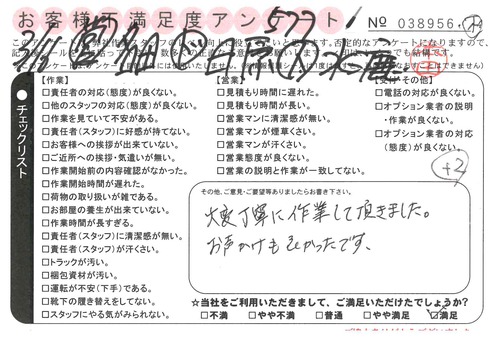 お客様満足度アンケート!
577
No 038956
【作業】
□責任者の対応(態度)が良くない。
□他のスタッフの対応(態度)が良くない。
□作業を見ていて不安がある。
□責任者(スタッフ)に好感が持てない。
□お客様への挨拶が出来ていない。
□ご近所への挨拶・気遣いが無い。
□作業開始前の内容確認がなかった。
□作業開始時間が遅れた。
□荷物の取り扱いが雑である。
□お部屋の養生が出来ていない。
□作業時間が長すぎる。
□責任者(スタッフ)に清潔感が無い。
□責任者(スタッフ)が汗くさい。
□トラックが汚い。
□梱包資材が汚い。
□運転が不安(下手)である。
□靴下の履き替えをしてない。
□スタッフにやる気がみられない。
チェックリスト
【営業】
□見積もり時間に遅れた。
□見積もり時間が長い。
□営業マンに清潔感が無い。
□営業マンが煙草くさい。
□営業マンが汗くさい。
□営業態度が良くない。
□営業の説明と作業が一致してない。
【受付・その他】
□電話の対応が良くない。
□オプション業者の説明
・作業が良くない。
□オプション業者の対応
(態度)が良くない。
+2
その他、ご意見・ご要望等ありましたらお書き下さい。
大変丁寧に作業して頂きました。
お声かけもよかったです、
☆当社をご利用いただきまして、ご満足いただけたでしょうか?
□不満 □やや不満 □普通 □やや満足 ☑満足